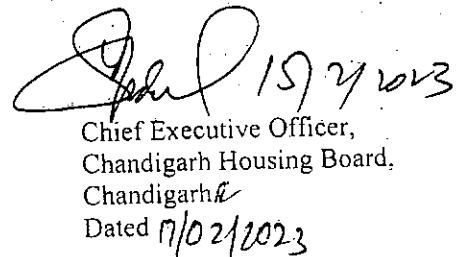 15/2/2023
Chief Executive Officer,
Chandigarh Housing Board,
Chandigarh
Dated 17/02/2023